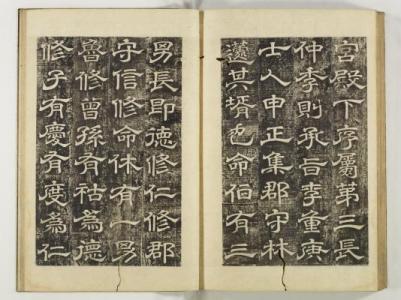 宮殿下序屬第三長
仲季則承旨季重庚
士人申正集郡守林
蘧其壻也命伯有三
男長卽德修仁修郡
守信修命休有一男
魯修曾孫有祜爲德
修子有慶有度爲仁